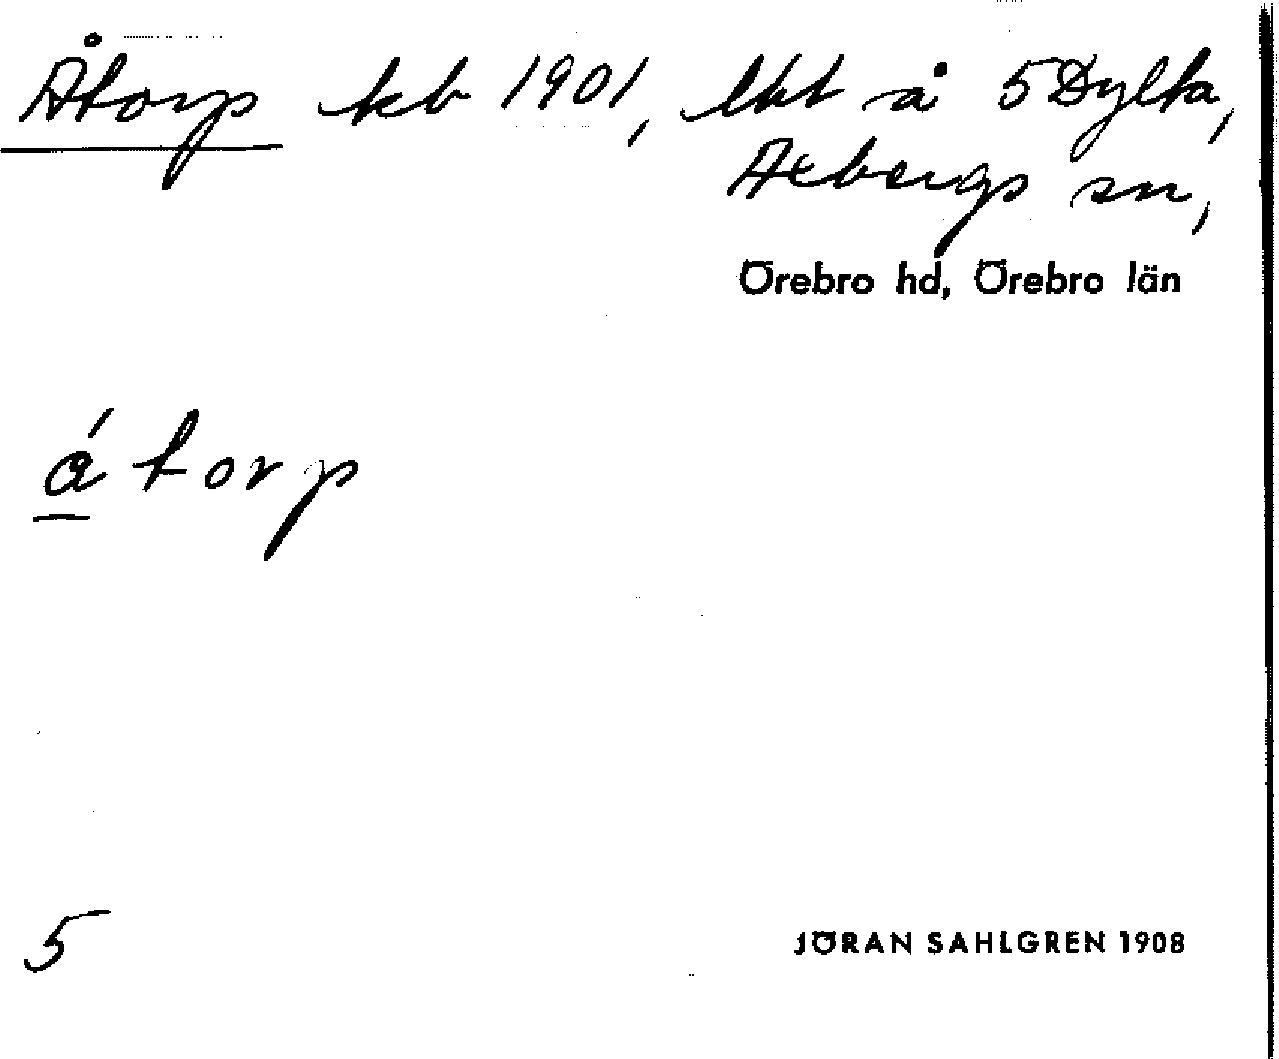 Åtorp kb 1901, lht å 5 Dylta,
Axbergs sn,
Örebro hd, Örebro län
á torp
5
JÖRAN SAHLGREN 1908